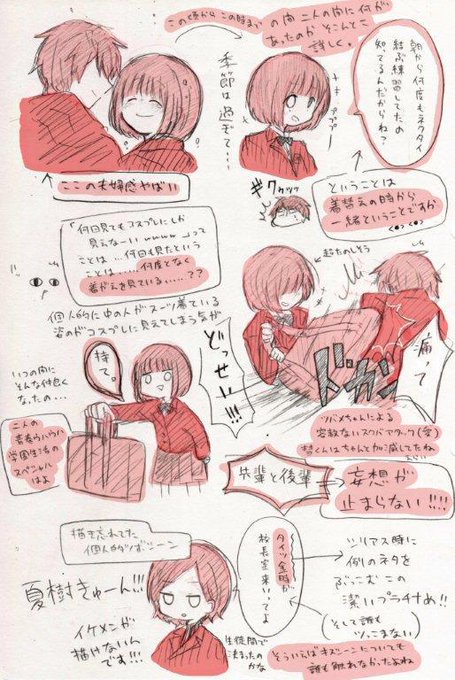 この仮から この時まで
の間 二人の間に何が
あったのか そこんとこ
詳しく。
季節は過ぎて・・・
朝から何度もネクタイ
結ぶ練習してたの
知ってるんだからね?
ここの夫婦感やばい
ギクッッ
ということは
着替えの時から
一緒ということですか
何回見てもコスプレにしか
見えなーいwwwwって
ことは…何回も見たという
ことは……何度となく
着がえを見ている……??
個人的に中の人がスーツ着ている
姿のがコスプレに見えてしまう気が
超たのしそう
どっせい!!!
ドガッ
痛って
いつの間に
そんな仲良く
なったの・・・
持て。
二人の
学園生活の
スペシャル
はよ
ツバメちゃんによる
容赦ないスクバアタック(愛)
先輩と後輩
妄想が
止まらない!!!!
描き忘れてた
個人的ツボシーン
夏樹きゅーん!!!
イケメンが
描けないん
です!!!
タイツ全員が
校長室来いってよ
生徒間で
決まったの
かな
シリアス時に
何のネタを
ぶっこむこの
潔いプラチナめ!!
そして誰も
ツッこまない
そういえばキスシーンについても
誰も触れなかったよね